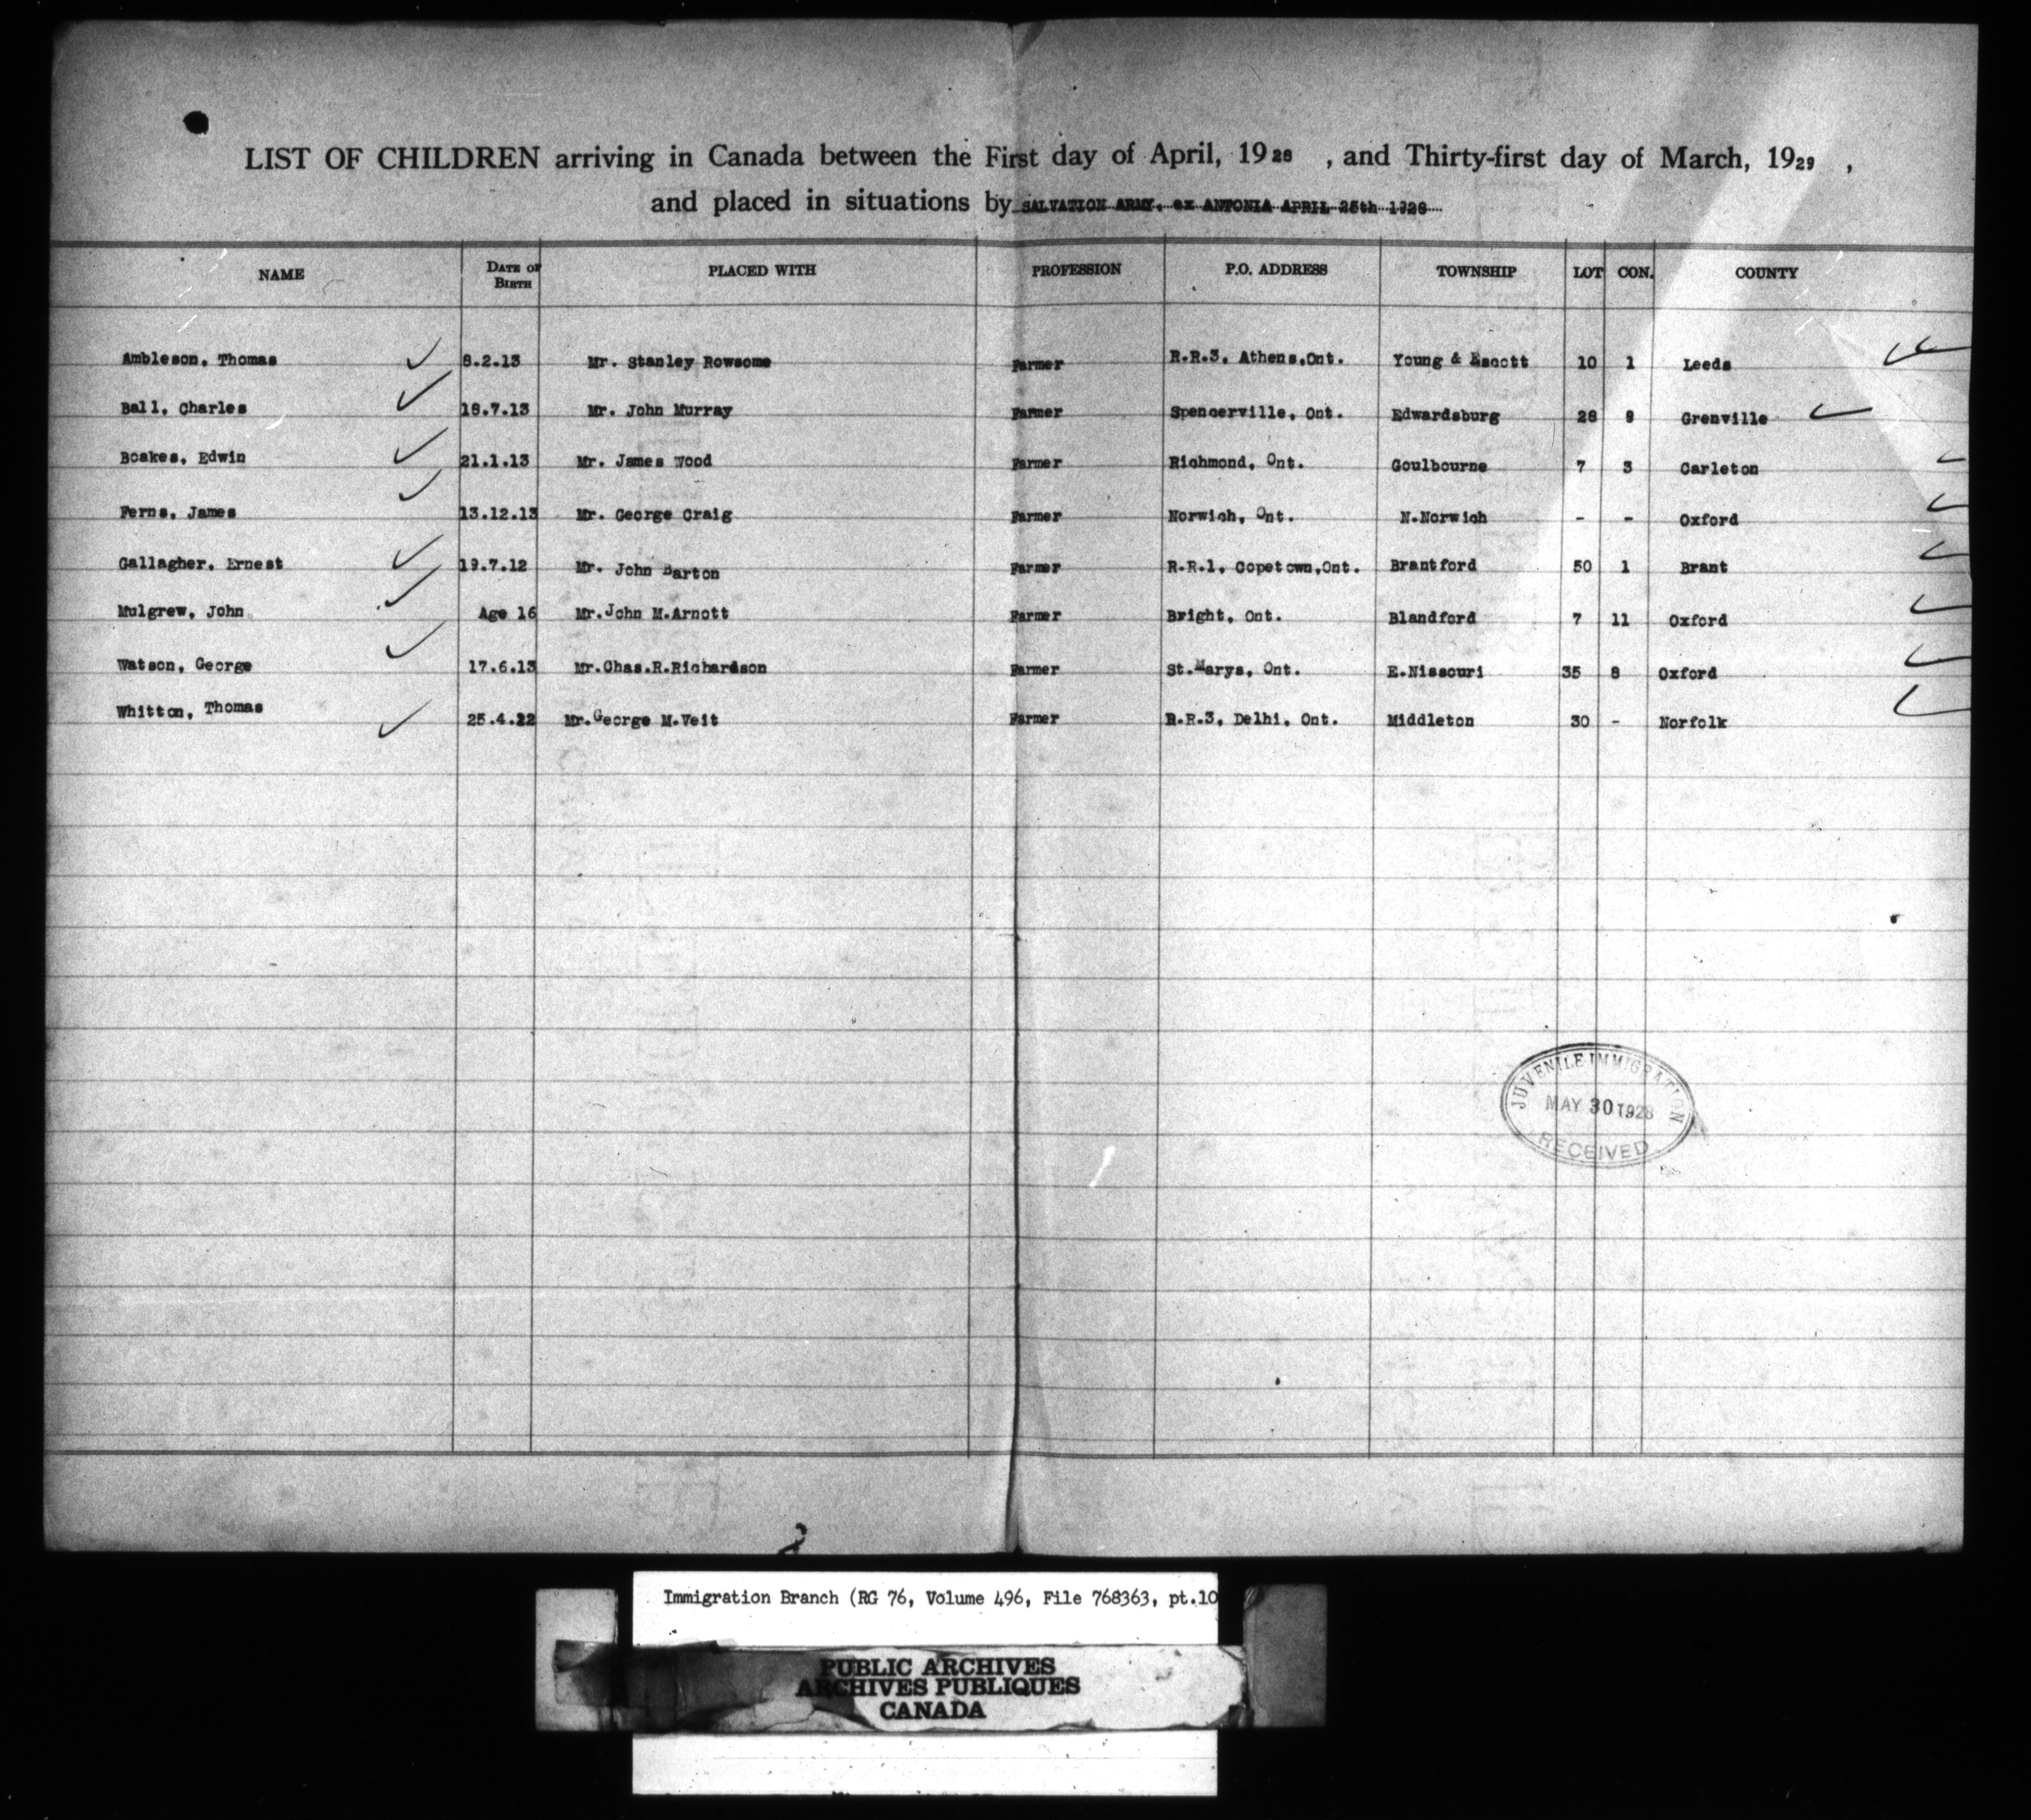 LIST OF CHILDREN arriving in Canada between the First day of April, 1928 , and Thirty-first day of March, 1929 ,
and placed in situations by SALVATION ARMY. ex ANTONIA APRIL 25th 1928
NAME DATE OF BIRTH PLACED WITH PROFESSION P.O. ADDRESS TOWNSHIP LOT CON. COUNTY
Ambleson, Thomas 8.2.13 Mr. Stanley Rowsome Farmer R.R.3, Athens,Ont. Young & Escott 10 1 Leeds
Ball, Charles 18.7.13 Mr. John Murray Farmer Spencerville, Ont. Edwardsburg 28 9 Grenville
Boakes, Edwin 21.1.13 Mr. James Wood Farmer Richmond, Ont. Goulbourne 7 3 Carleton
Ferns, James 13.12.13 Mr. George Craig Farmer Norwich, Ont. N.Norwich - - Oxford
Gallagher, Ernest 19.7.12 Mr. John Barton Farmer R.R.1, Copetown,Ont. Brantford 50 1 Brant
Mulgrew, John Age 16 Mr.John M.Arnott Farmer Bright, Ont. Blandford 7 11 Oxford
Watson, George 17.6.13 Mr.Chas.R.Richardson Farmer St.Marys, Ont. E.Nissouri 35 8 Oxford
Whitton, Thomas 25.4.12 Mr.George M.Veit Farmer R.R.3, Delhi, Ont. Middleton 30 - Norfolk
JUVENILE IMMIGRATION
MAY 30 1928
RECEIVED
Immigration Branch (RG 76, Volume 496, File 768363, pt.10
PUBLIC ARCHIVES
ARCHIVES PUBLIQUES
CANADA